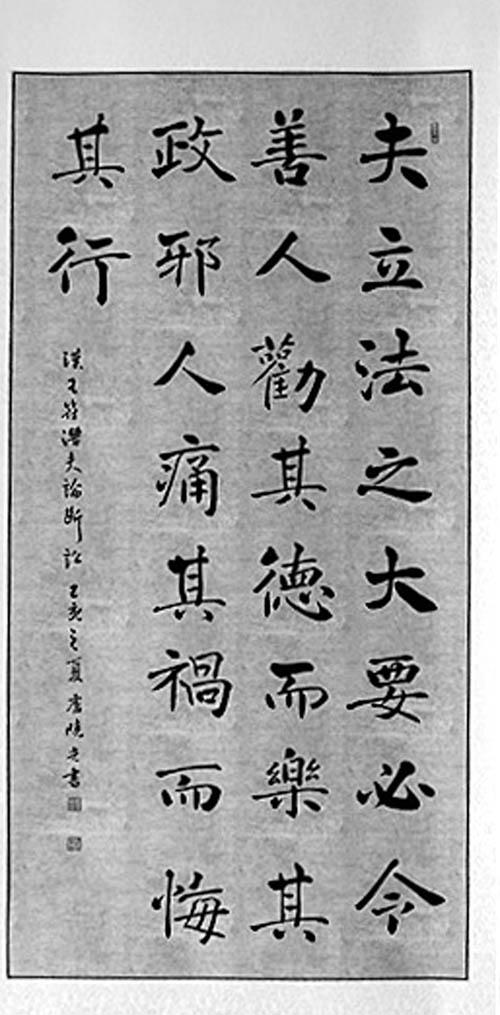 夫立法之大要必令
善人勸其德而樂其
政邪人痛其禍而悔
其行
漢王符潛夫論斷訟 己亥之夏 書